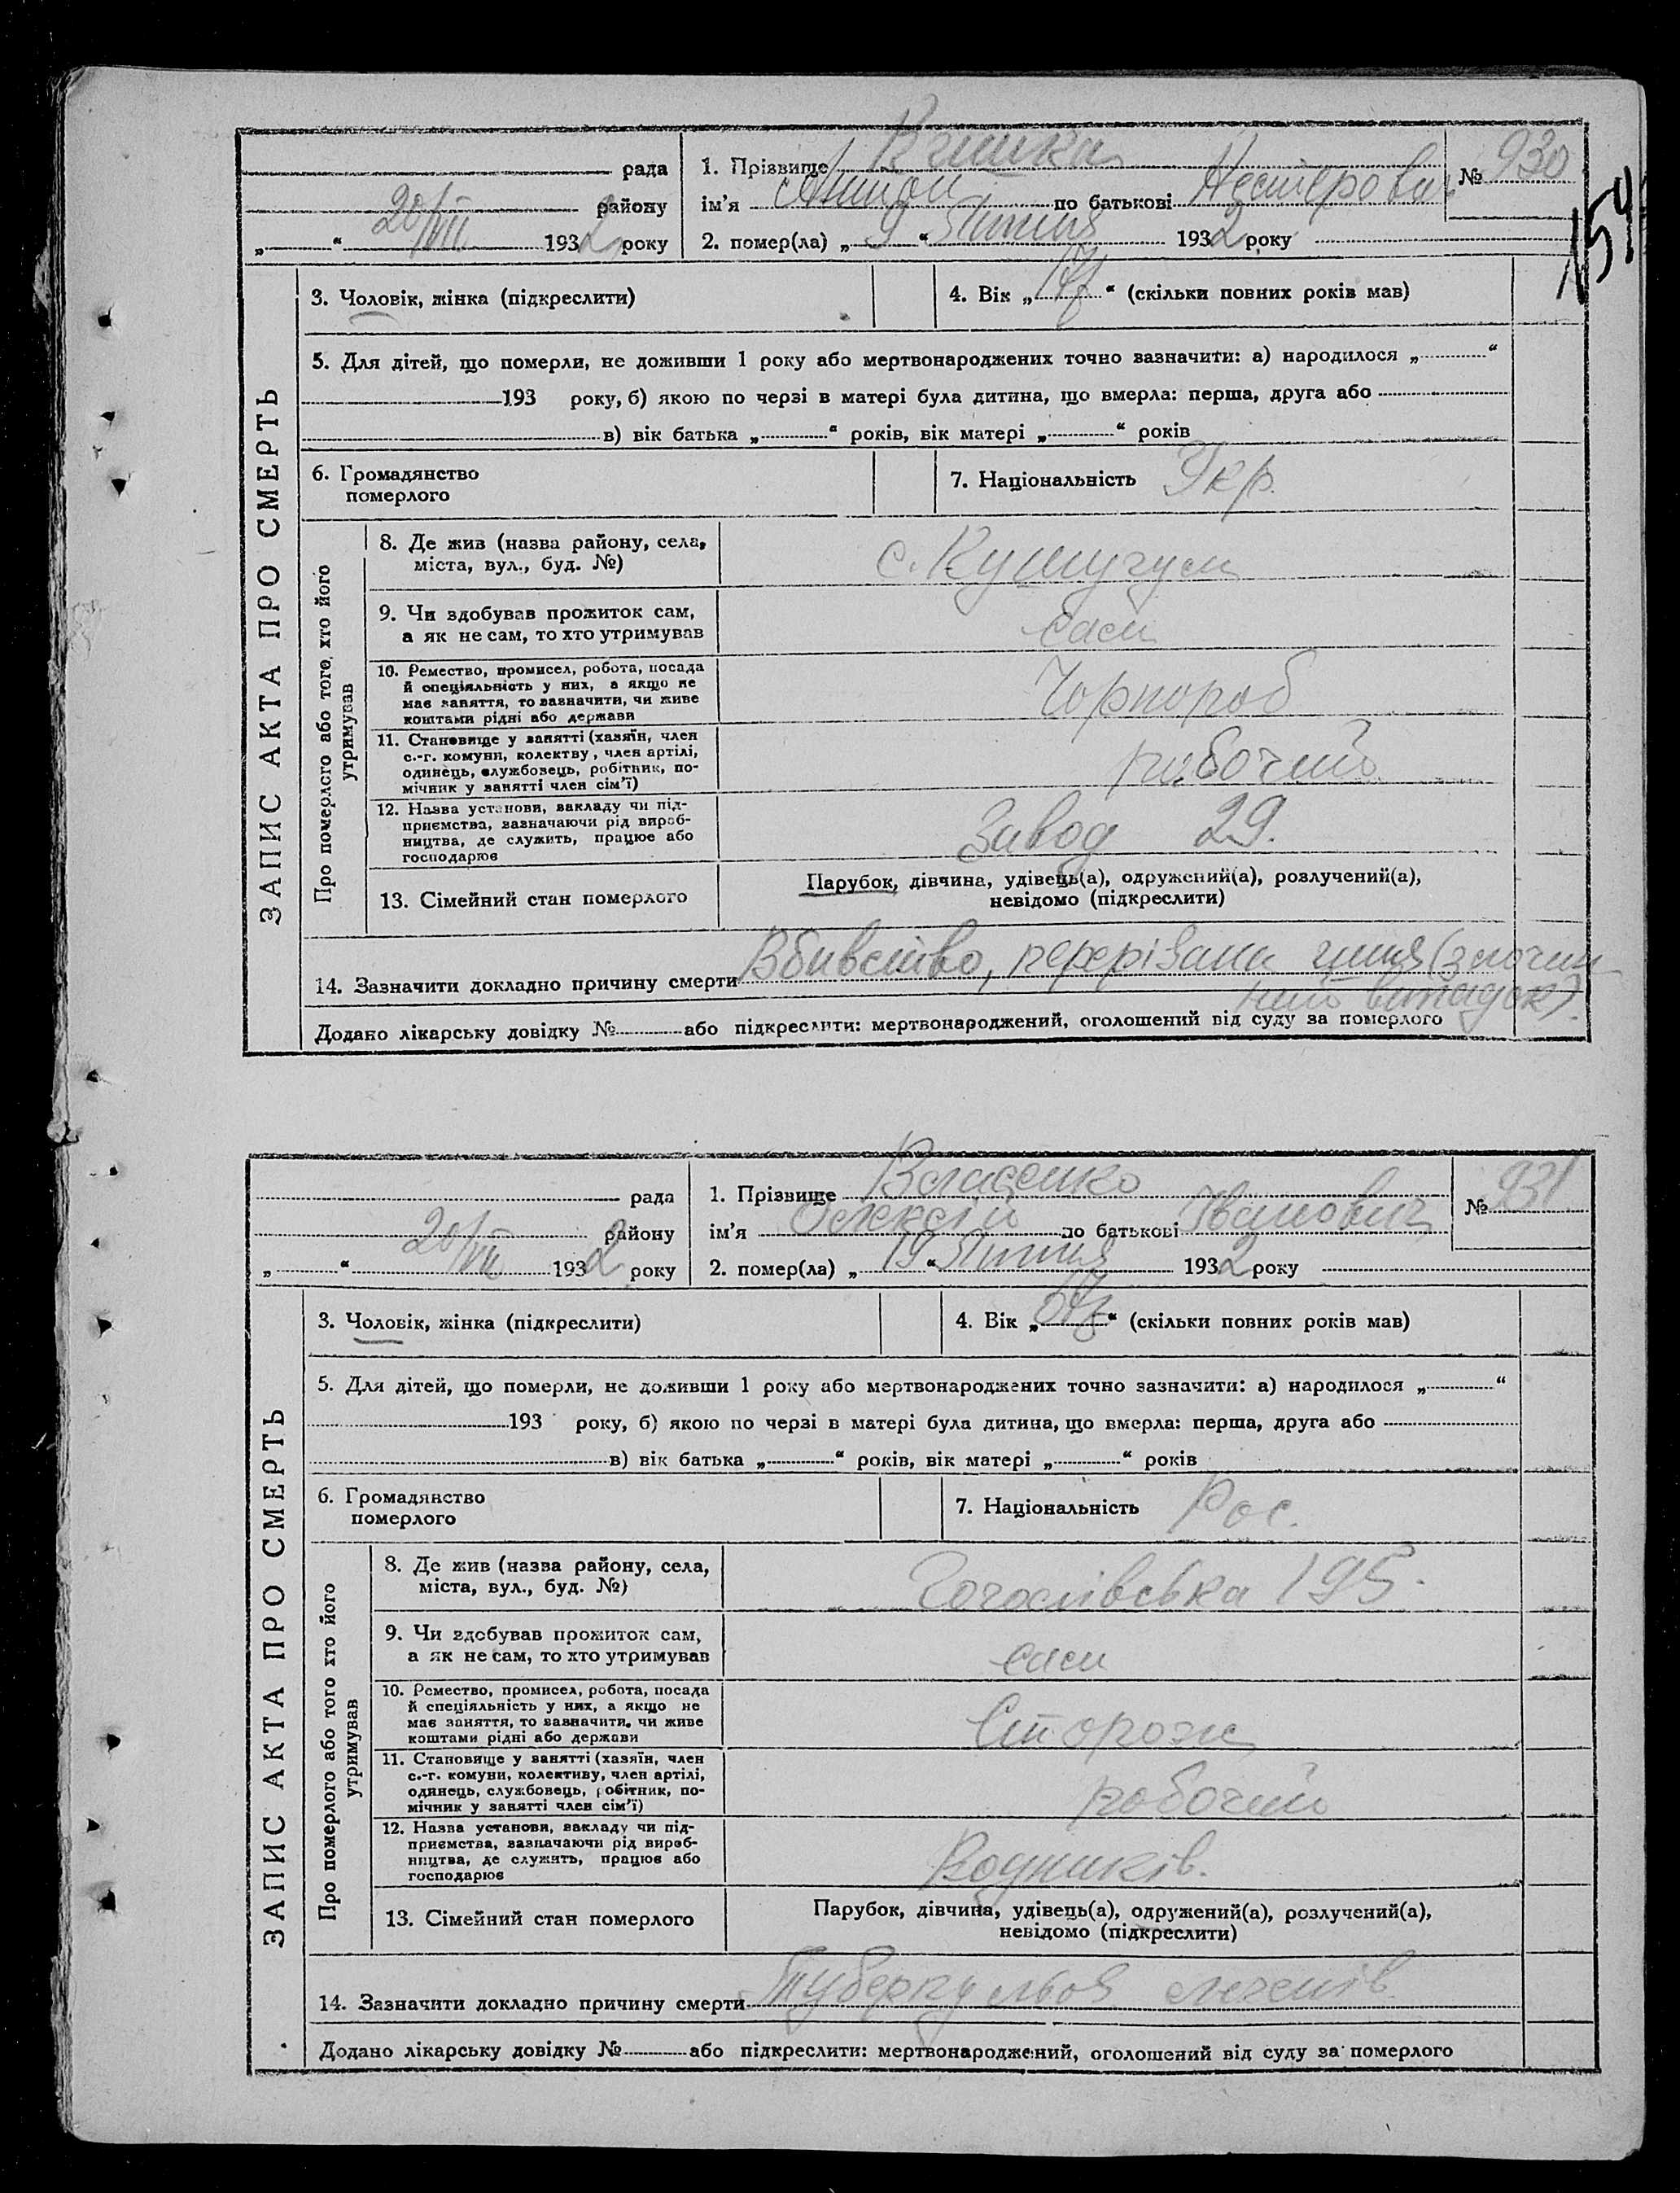 рада
району
20/VII 1932 року
1. Прізвище
ім'я Антон по батькові Нестерович
2. помер(ла) „ 9 “ Липня 1932 року
№ 930
154
ЗАПИС АКТА ПРО СМЕРТЬ
3. Чоловік, жінка (підкреслити)
4. Вік „ 17 “ (скільки повних років мав)
5. Для дітей, що померли, не доживши 1 року або мертвонароджених точно зазначити: а) народилося „ “
193 року, б) якою по черзі в матері була дитина, що вмерла: перша, друга або
в) вік батька „ “ років, вік матері „ “ років
6. Громадянство
померлого
7. Національність Укр.
Про померлого або того, хто його
утримував
8. Де жив (назва району, села,
міста, вул., буд. №)
с. Кушугум
9. Чи здобував прожиток сам,
а як не сам, то хто утримував
сам
10. Ремество, промисел, робота, посада
й спеціяльність у них, а якщо не
має заняття, то зазначити, чи живе
коштами рідні або держави
Чорнороб
11. Становище у занятті (хазяїн, член
с.-г. комуни, колектву, член артілі,
одинець, службовець, робітник, по-
мічник у занятті член сім'ї)
робочий
12. Назва установи, закладу чи під-
приємства, зазначаючи рід вироб-
ництва, де служить, працює або
господарює
Завод 29.
13. Сімейний стан померлого
Парубок, дівчина, удівець(а), одружений(а), розлучений(а),
невідомо (підкреслити)
14. Зазначити докладно причину смерти Вбивство, перерізана шия (злочин
ний випадок).
Додано лікарську довідку № або підкреслити: мертвонароджений, оголошений від суду за померлого
рада
району
20/VII 1932 року
1. Прізвище Власенко
ім'я Олексій по батькові Іванович
2. помер(ла) „ 19 “ Липня 1932 року
№ 931
ЗАПИС АКТА ПРО СМЕРТЬ
3. Чоловік, жінка (підкреслити)
4. Вік „ “ (скільки повних років мав)
5. Для дітей, що померли, не доживши 1 року або мертвонароджених точно зазначити: а) народилося „ “
193 року, б) якою по черзі в матері була дитина, що вмерла: перша, друга або
в) вік батька „ “ років, вік матері „ “ років
6. Громадянство
померлого
7. Національність Рос.
Про померлого або того хто його
утримував
8. Де жив (назва району, села,
міста, вул., буд. №)
Гоголівська 195.
9. Чи здобував прожиток сам,
а як не сам, то хто утримував
сам
10. Ремество, промисел, робота, посада
й спеціяльність у них, а якщо не
має заняття, то зазначити, чи живе
коштами рідні або держави
Сторож
11. Становище у занятті (хазяїн, член
с.-г. комуни, колективу, член артілі,
одинець, службовець, робітник, по-
мічник у занятті член сім'ї)
робочий
12. Назва установи, закладу чи під-
приємства, зазначаючи рід вироб-
ництва, де служить, працює або
господарює
Водників.
13. Сімейний стан померлого
Парубок, дівчина, удівець(а), одружений(а), розлучений(а),
невідомо (підкреслити)
14. Зазначити докладно причину смерти Туберкульоз легенів
Додано лікарську довідку № або підкреслити: мертвонароджений, оголошений від суду за померлого